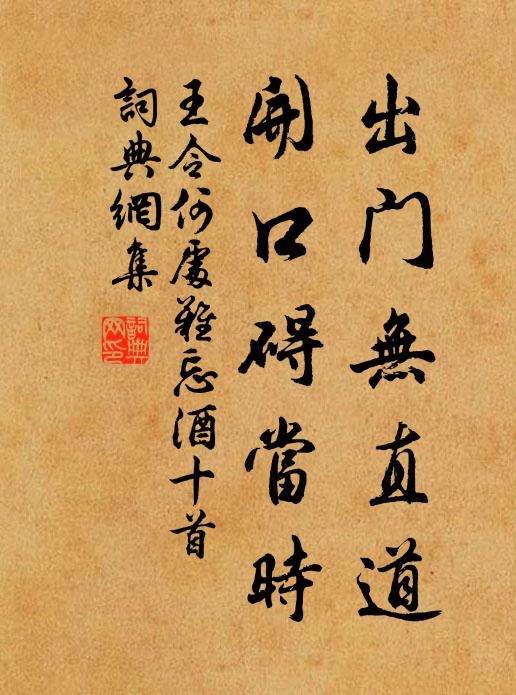 出门無直道
開口碍當時
王令何處難忘酒十首
詞典網集
詞典网印